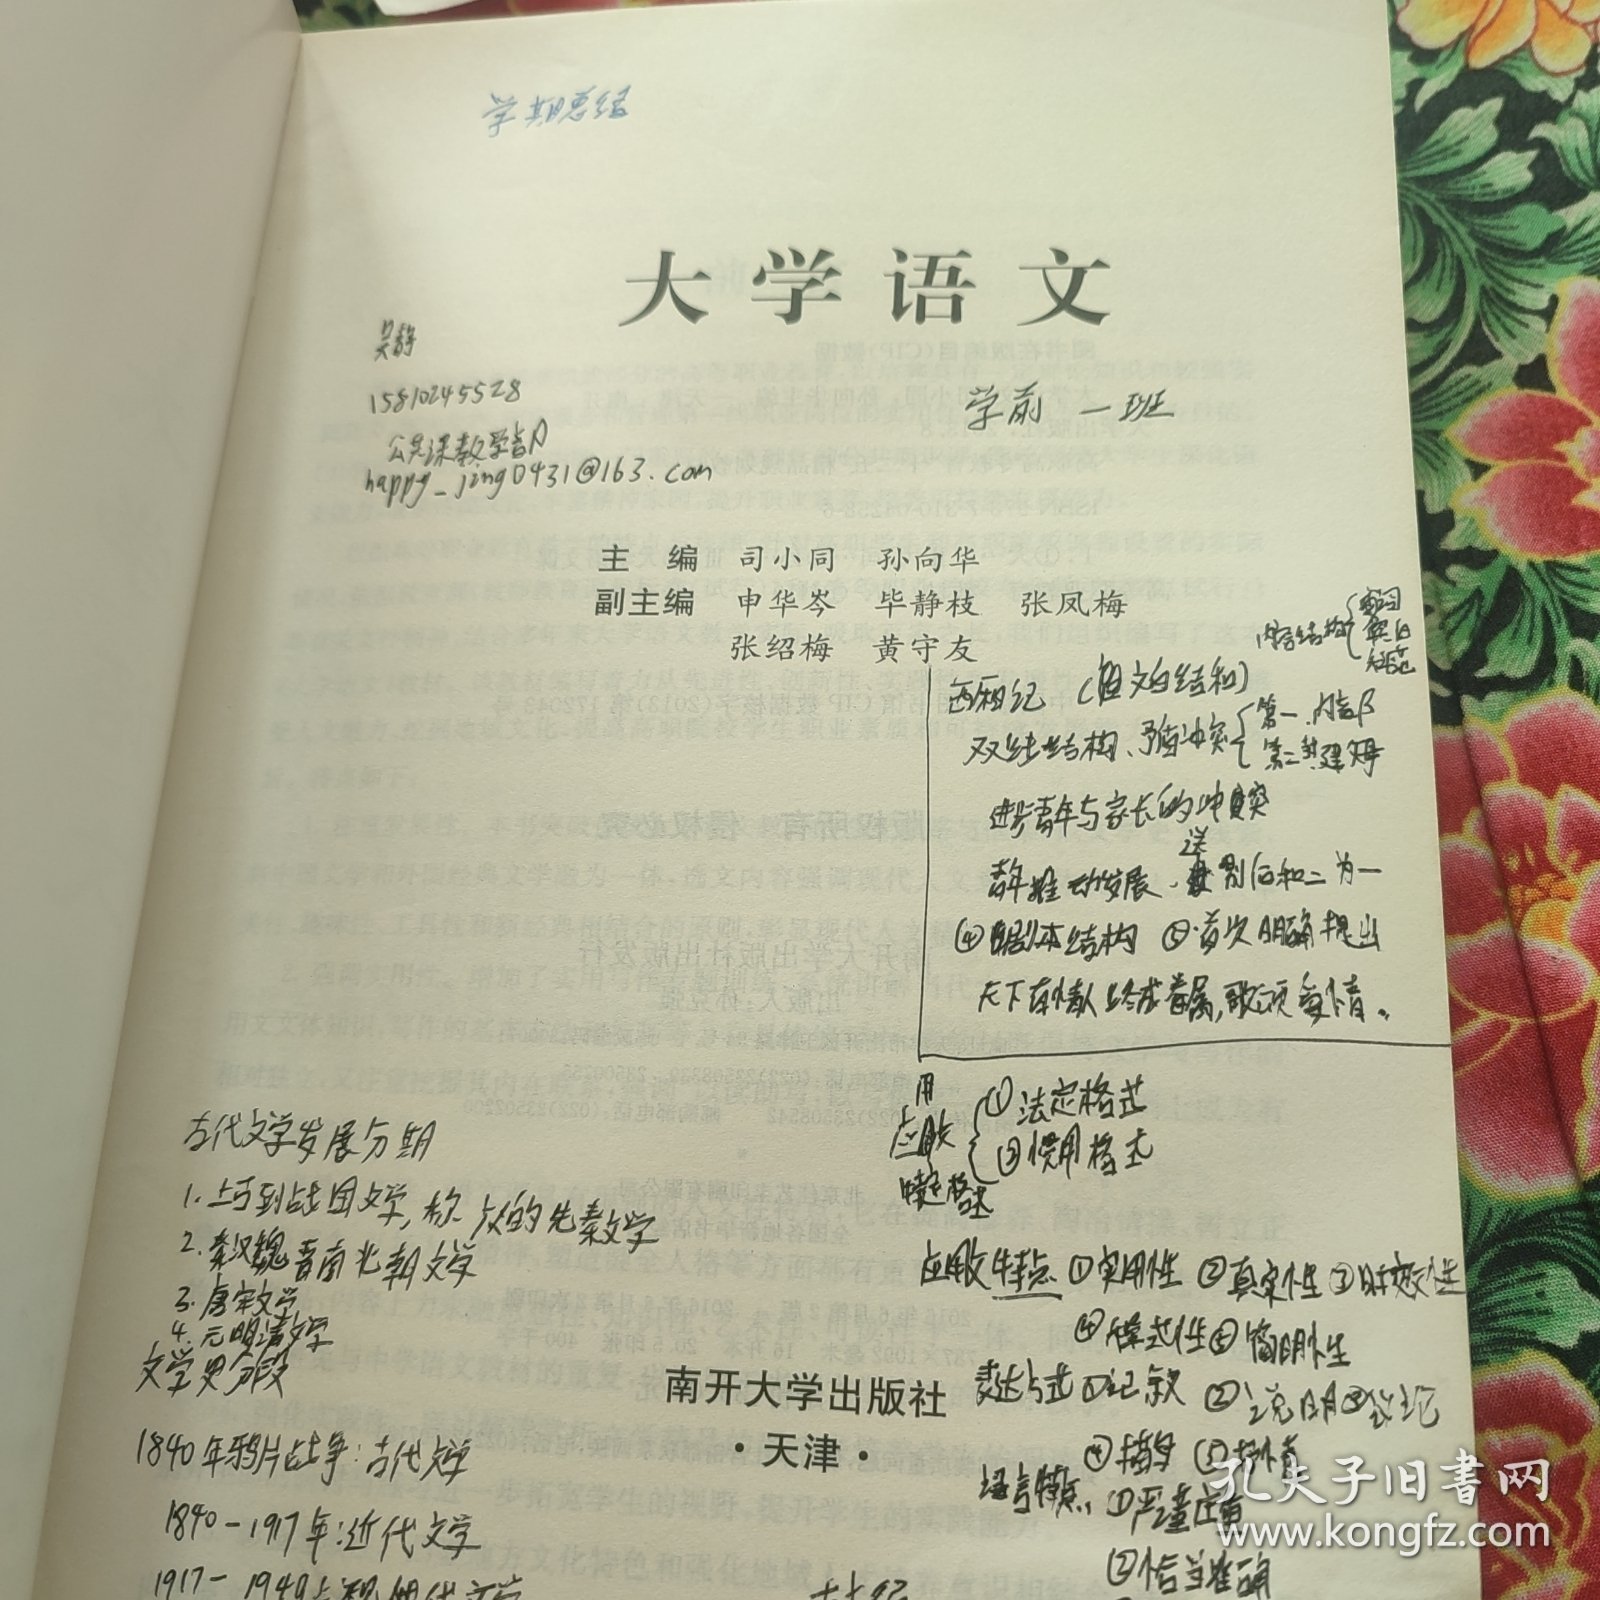 学期总结
大学语文
吴静
15810245528
学前 一班
公共课教学部
happy_jing0431@163.com
主 编 司小同 孙向华
副主编 申华岑 毕静枝 张凤梅
张绍梅 黄守友
西厢记
双线结构、矛盾冲突
第一、内部
第二封建
进步青年与家长的冲突
青年推动发展、送别后和二为一
④剧本结构 ⑤首次明确提出
天下有情人终成眷属,歌颂爱情。
古代文学发展分期
1.上古到战国文学,称 的先秦文学
2.秦汉魏晋南北朝文学
3.唐宋文学
4.元明清文学
文学史分段
1840年鸦片战争:古代文学
1840-1917年:近代文学
1917-1949
用
应
①法定格式
②惯用格式
特点①实用性 ②真实性 ③时效性
④模式性⑤简明性
表达方式①记叙 ②说明③议论
④描写 ⑤抒情
语言特点、①严谨庄重
②恰当准确
南开大学出版社
·天津·
孔夫子旧书网
www.kongfz.com